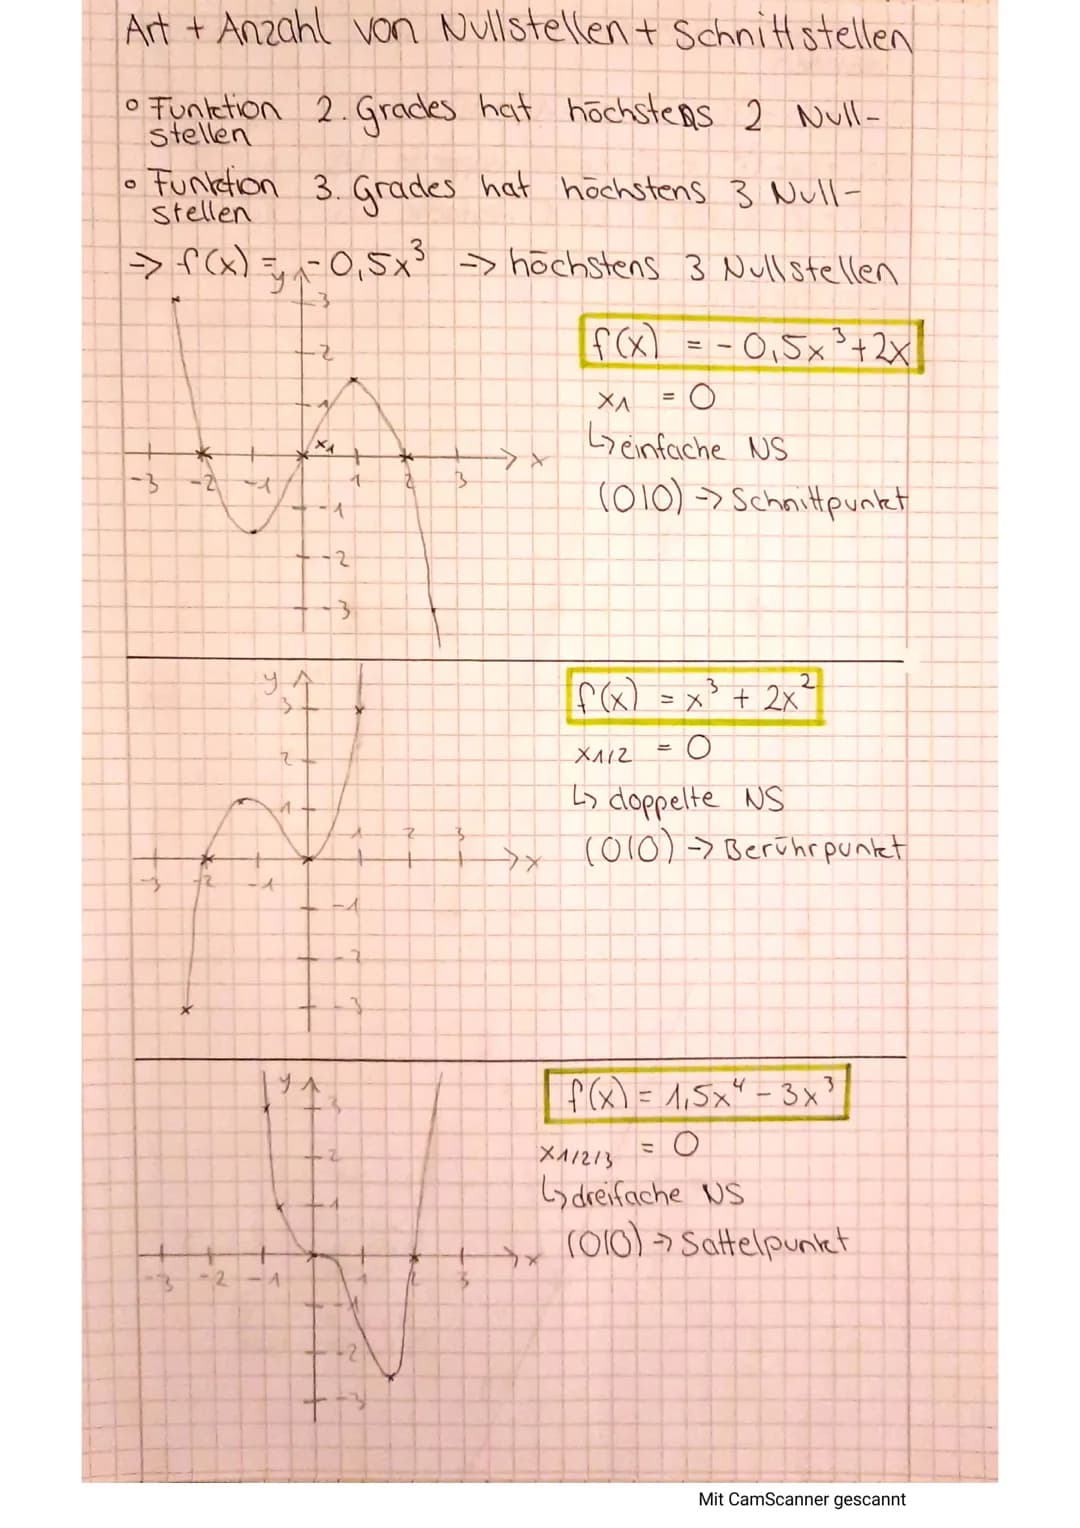 Art + Anzahl von Nullstellen + Schnittstellen
° Funktion 2. Grades hat höchstens 2 Null-
stellen
° Funktion 3. Grades hat höchstens 3 Null-
stellen
-> f(x) = -0,5x³ -> höchstens 3 Nullstellen
y
3
2
1
x1
x
-3 -2 -1 1 2 3
-1
-2
-3
f(x) = -0,5x³+2x
x1 = 0
↳ einfache NS
(0|0) -> Schnittpunkt
y
3
2
1
1 2 3
x
-3 -2 -1
-1
-2
-3
f(x) = x³ + 2x²
x1/2 = 0
↳ doppelte NS
(0|0) -> Berührpunkt
y
3
2
1
x
-3 -2 -1 1 2 3
-1
-2
-3
f(x) = 1,5x⁴ - 3x³
x1/2/3 = 0
↳ dreifache NS
(0|0) -> Sattelpunkt
Mit CamScanner gescannt